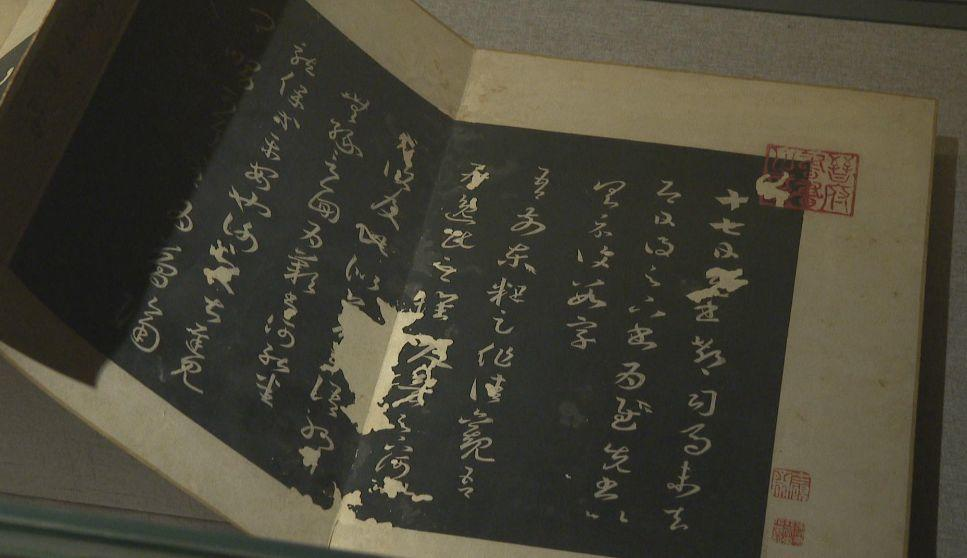 晉府書畫之印
十七日先書郗司馬未去
即日得足下書為慰先書以
具示復數字
吾前東粗足作佳觀吾
為逸民之懷久矣足下何以
等復及此似夢中語耶
無緣言面為歎書何能悉
龍保等平安也謝之甚遲見
為簡隔也